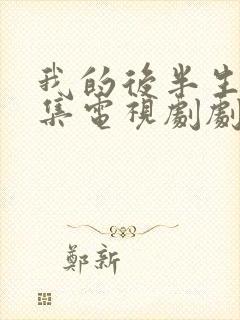 我的後半生
集電視劇劇
鄭新